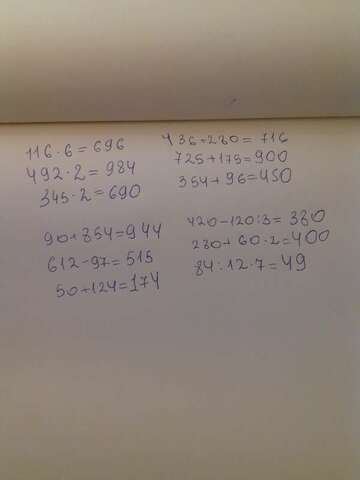 116·6=696
492·2=984
345·2=690
436+280=716
725+175=900
354+96=450
90+854=944
612-97=515
50+124=174
420-120:3=380
280+60·2=400
84:12·7=49